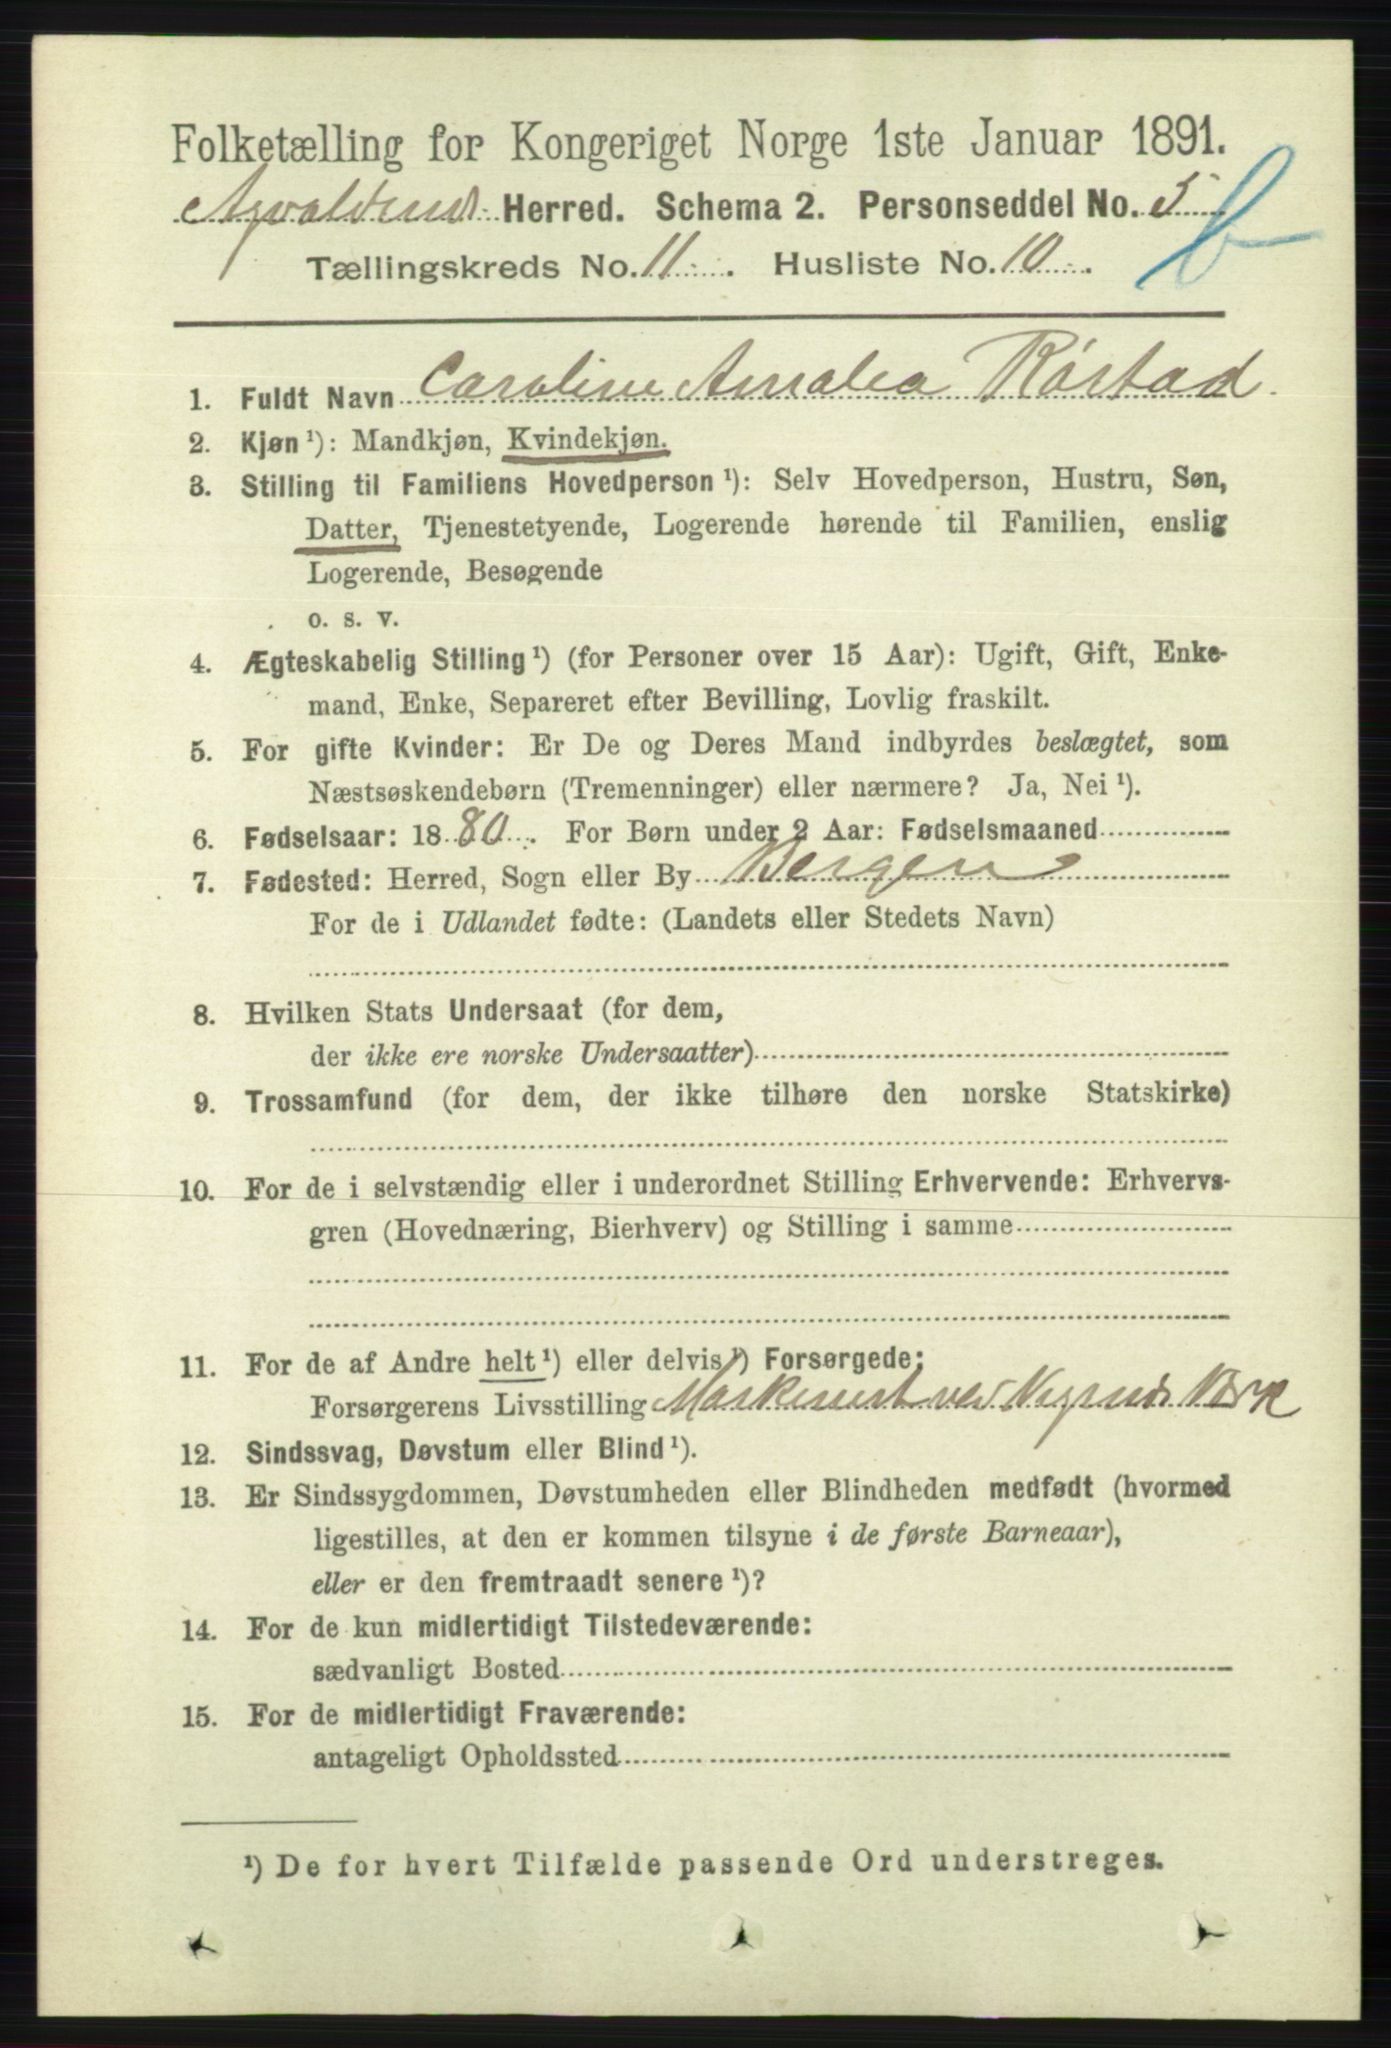 Folketælling for Kongeriget Norge 1ste Januar 1891.
Avaldsnes Herred. Schema 2. Personseddel No. 5
Tællingskreds No. 11. Husliste No. 10.
b
1. Fuldt Navn Caroline Amalia Rörstad.
2. Kjøn ¹): Mandkjøn, Kvindekjøn.
3. Stilling til Familiens Hovedperson ¹): Selv Hovedperson, Hustru, Søn,
Datter, Tjenestetyende, Logerende hørende til Familien, enslig
Logerende, Besøgende
o. s. v.
4. Ægteskabelig Stilling ¹) (for Personer over 15 Aar): Ugift, Gift, Enke-
mand, Enke, Separeret efter Bevilling, Lovlig fraskilt.
5. For gifte Kvinder: Er De og Deres Mand indbyrdes beslægtet, som
Næstsøskendebørn (Tremenninger) eller nærmere? Ja, Nei ¹).
6. Fødselsaar: 1880. For Børn under 2 Aar: Fødselsmaaned
7. Fødested: Herred, Sogn eller By Bergen
For de i Udlandet fødte: (Landets eller Stedets Navn)
8. Hvilken Stats Undersaat (for dem,
der ikke ere norske Undersaatter)
9. Trossamfund (for dem, der ikke tilhøre den norske Statskirke)
10. For de i selvstændig eller i underordnet Stilling Erhvervende: Erhvervs-
gren (Hovednæring, Bierhverv) og Stilling i samme
11. For de af Andre helt ¹) eller delvis ¹) Forsørgede:
Forsørgerens Livsstilling Maskinist ved Vigsnes Værk
12. Sindssvag, Døvstum eller Blind ¹).
13. Er Sindssygdommen, Døvstumheden eller Blindheden medfødt (hvormed
ligestilles, at den er kommen tilsyne i de første Barneaar),
eller er den fremtraadt senere ¹)?
14. For de kun midlertidigt Tilstedeværende:
sædvanligt Bosted
15. For de midlertidigt Fraværende:
antageligt Opholdssted
¹) De for hvert Tilfælde passende Ord understreges.